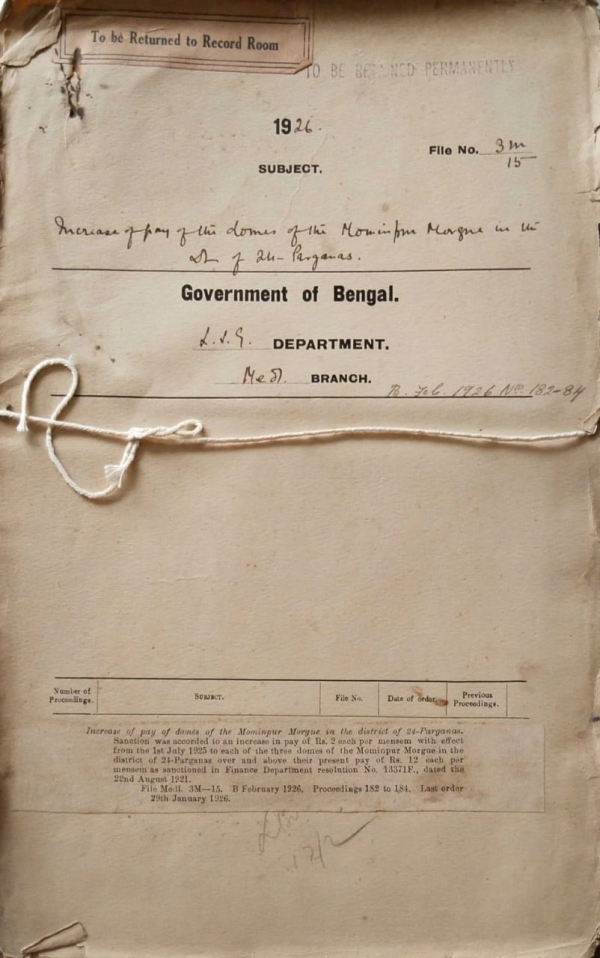 To be Returned to Record Room
TO BE RETAINED PERMANENTLY
1926.
File No. 3m/15
SUBJECT.
Increase of pay of the domes of the Mominpur Morgue in the
Dt. of 24-Parganas.
Government of Bengal.
L.S.G. DEPARTMENT.
Medl. BRANCH.
B. Feb. 1926 Nos. 182-84
Number of Proceedings. SUBJECT. File No. Date of order. Previous Proceedings.
Increase of pay of domes of the Mominpur Morgue in the district of 24-Parganas.
Sanction was accorded to an increase in pay of Rs. 2 each per mensem with effect
from the 1st July 1925 to each of the three domes of the Mominpur Morgue in the
district of 24-Parganas over and above their present pay of Rs. 12 each per
mensem as sanctioned in Finance Department resolution No. 13371F., dated the
22nd August 1921.
File Medl. 3M—15. B February 1926. Proceedings 182 to 184. Last order
29th January 1926.